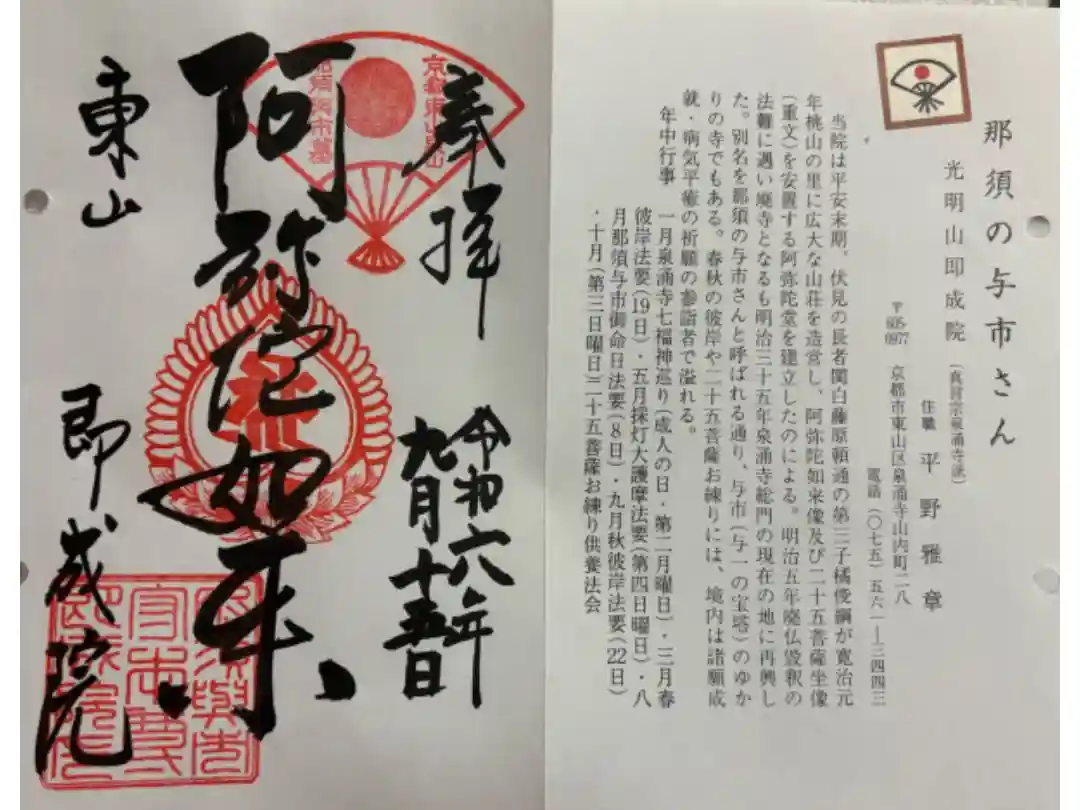 那須の与市さん
光明山即成院(真言宗泉涌寺派)
住職 平野雅章
〒605-0977 京都市東山区泉涌寺山内町二八
電話(〇七五)五六一―三四四三
当院は平安末期、伏見の長者関白藤原頼通の第三子橘俊綱が寛治元
年桃山の里に広大な山荘を造営し、阿弥陀如来像及び二十五菩薩坐像
(重文)を安置する阿弥陀堂を建立したのによる。明治五年廃仏毀釈の
法難に遇い廃寺となるも明治三十五年泉涌寺総門の現在の地に再興し
た。別名を那須の与市さんと呼ばれる通り、与市(与一の宝塔)のゆか
りの寺でもある。春秋の彼岸や二十五菩薩お練りには、境内は諸願成
就・病気平癒の祈願の参詣者で溢れる。
年中行事 一月泉涌寺七福神巡り(成人の日・第二月曜日)・三月春
彼岸法要(19日)・五月採灯大護摩法要(第四日曜日)・八
月那須与市御命日法要(8日)・九月秋彼岸法要(22日)
・十月(第三日曜日)二十五菩薩お練り供養法会
奉拝
令和六年
九月十五日
阿弥陀如来
那須與市墓
東山
即成院